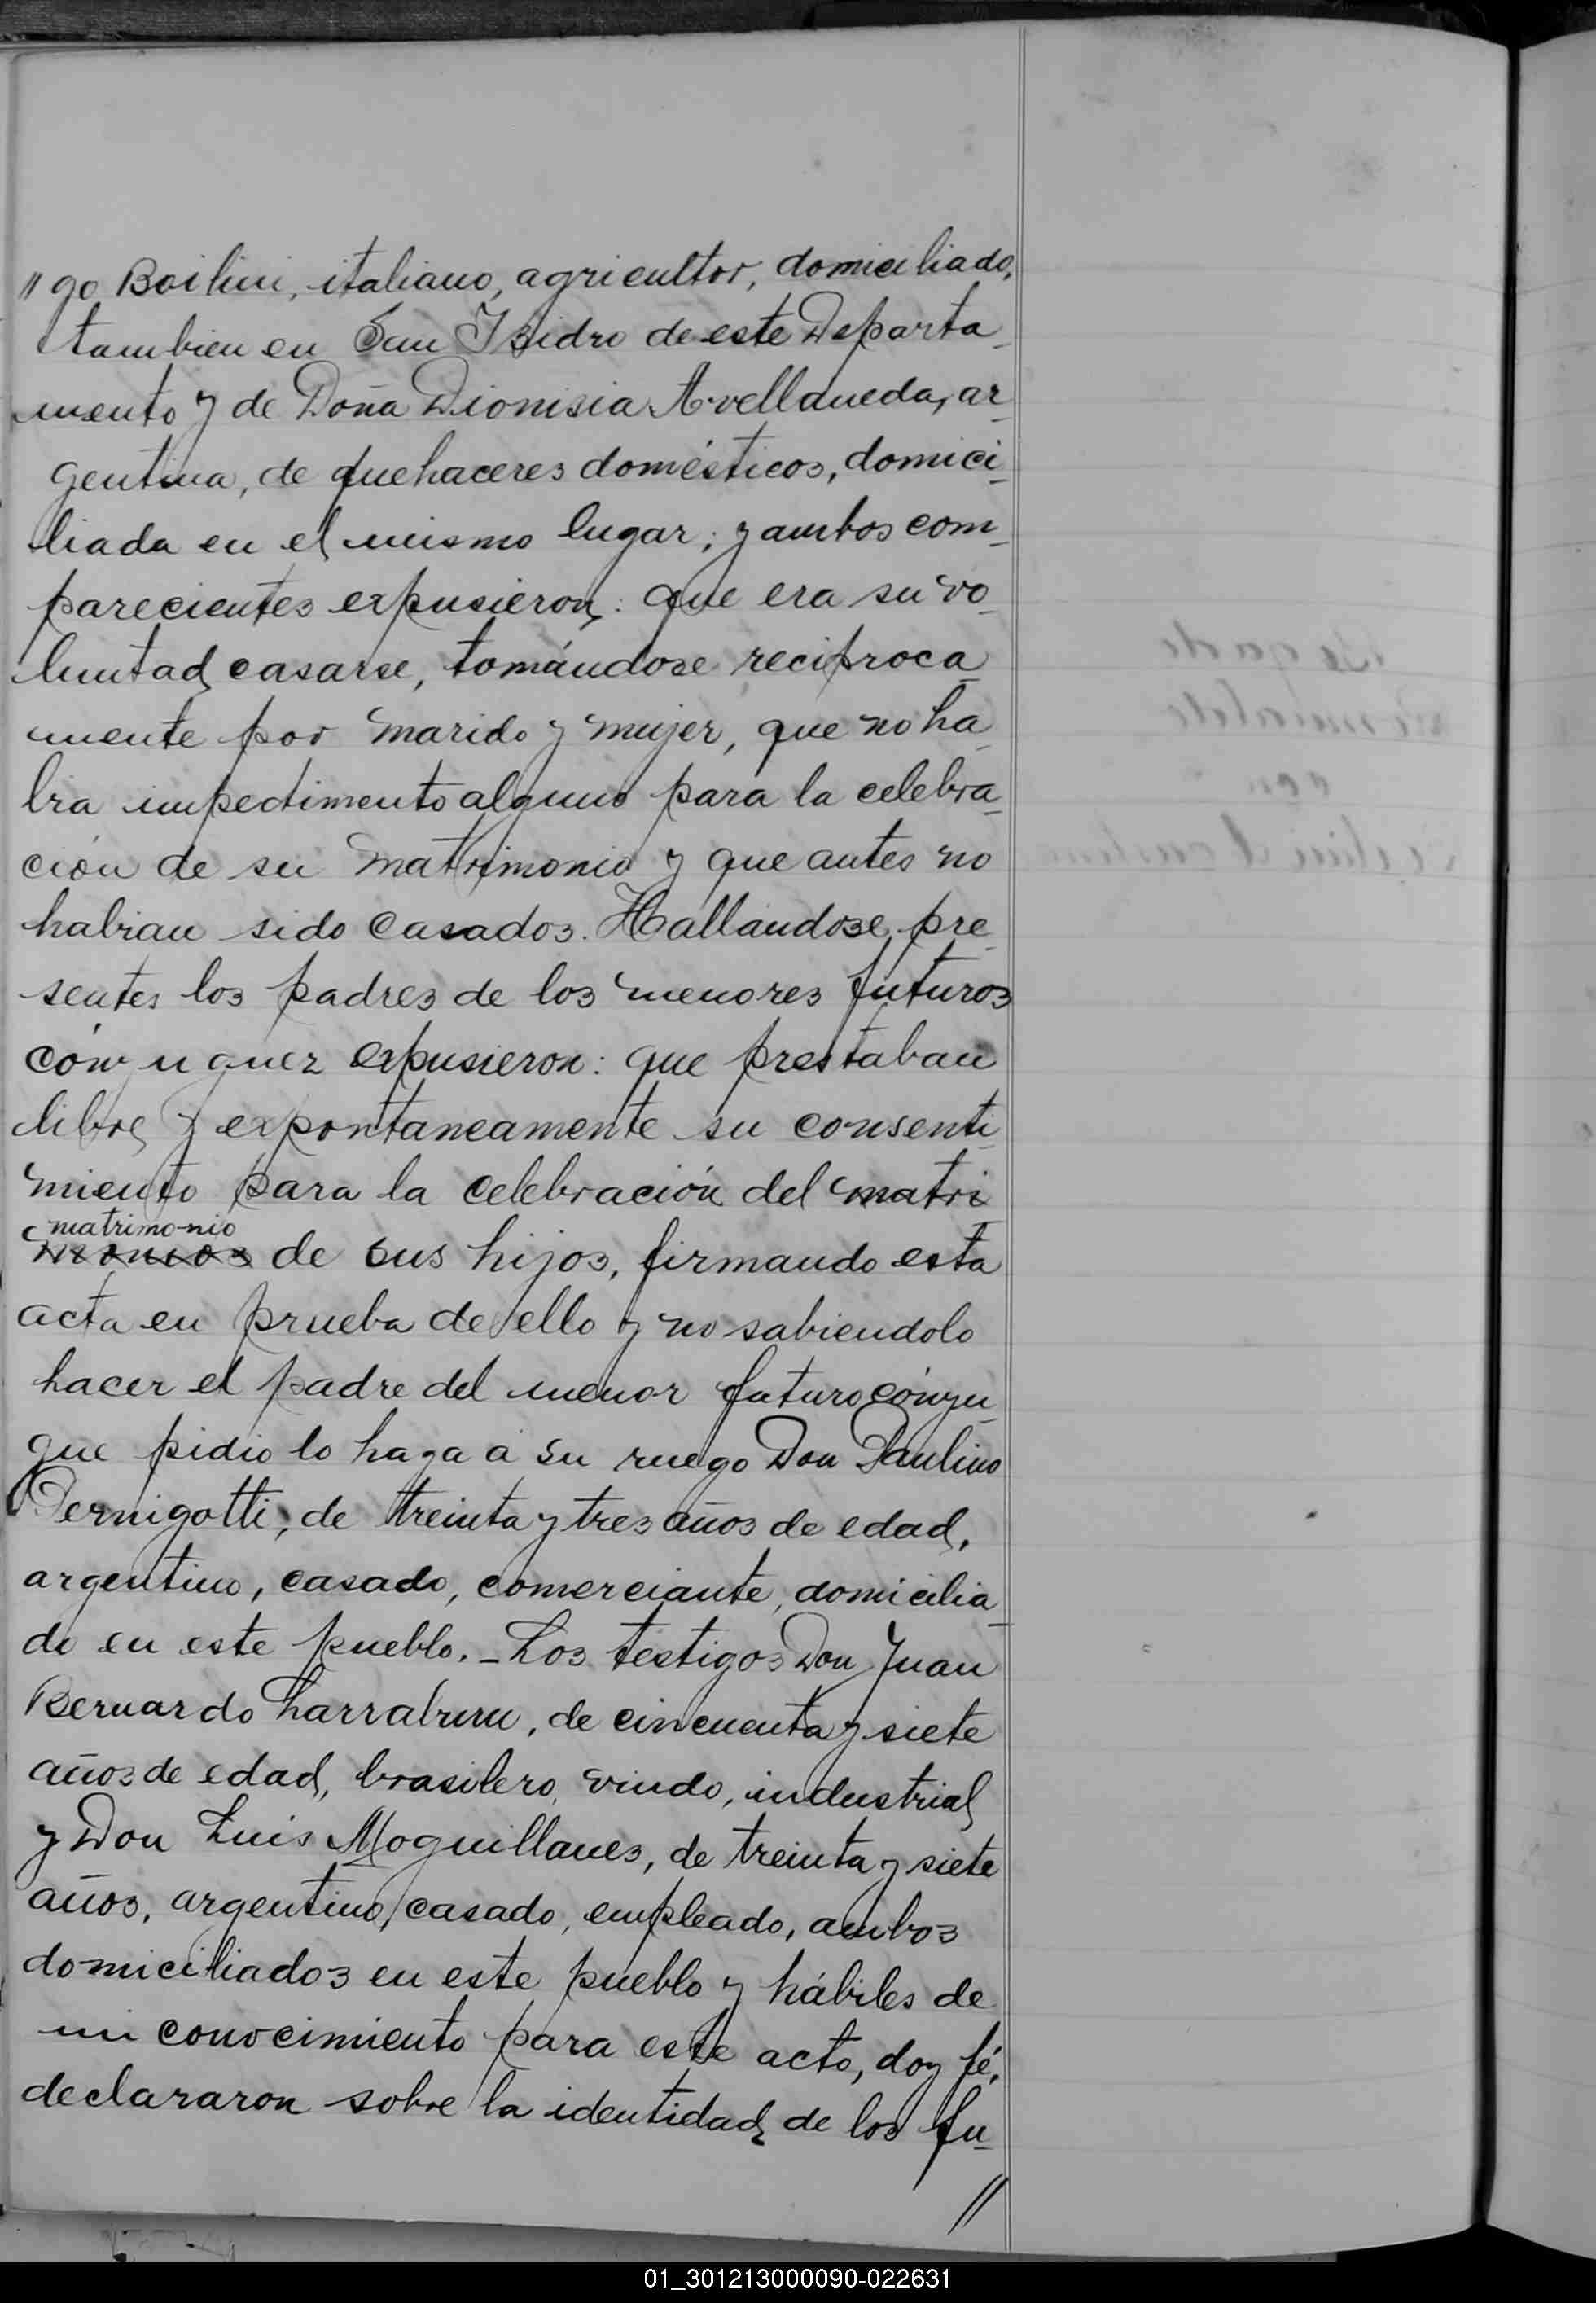 "go Boilini, italiano, agricultor, domiciliado,
tambien en San Isidro de este Departa_
mento y de Doña Dionisia Avellaneda, ar_
gentina, de quehaceres domésticos, domici_
liada en el mismo lugar; y ambos com_
parecientes expusieron: que era su vo_
luntad casarse, tomándose reciproca_
mente por marido y mujer, que no ha_
bia impedimento alguno para la celebra_
ción de su matrimonio y que antes no
habian sido casados. Hallandose pre_
sentes los padres de los menores futuros
cónyuguez expusieron: que prestaban
libre y expontaneamente su consenti_
miento para la celebración del matri_
matrimonio
monios de sus hijos, firmando esta
acta en prueba de ello y no sabiendolo
hacer el padre del menor futuro cónyu_
gue pidió lo haga a su ruego Don Paulino
Pernigotti, de treinta y tres años de edad,
argentino, casado, comerciante, domicilia_
do en este pueblo._ Los testigos Don Juan
Bernardo Larraburu, de cincuenta y siete
años de edad, brasilero, viudo, industrial
y Don Luis Moguillanes, de treinta y siete
años, argentino, casado, empleado, ambos
domiciliados en este pueblo y hábiles de
mi conocimiento para este acto, doy fé,
declararon sobre la identidad de los fu_
//
01_301213000090-022631